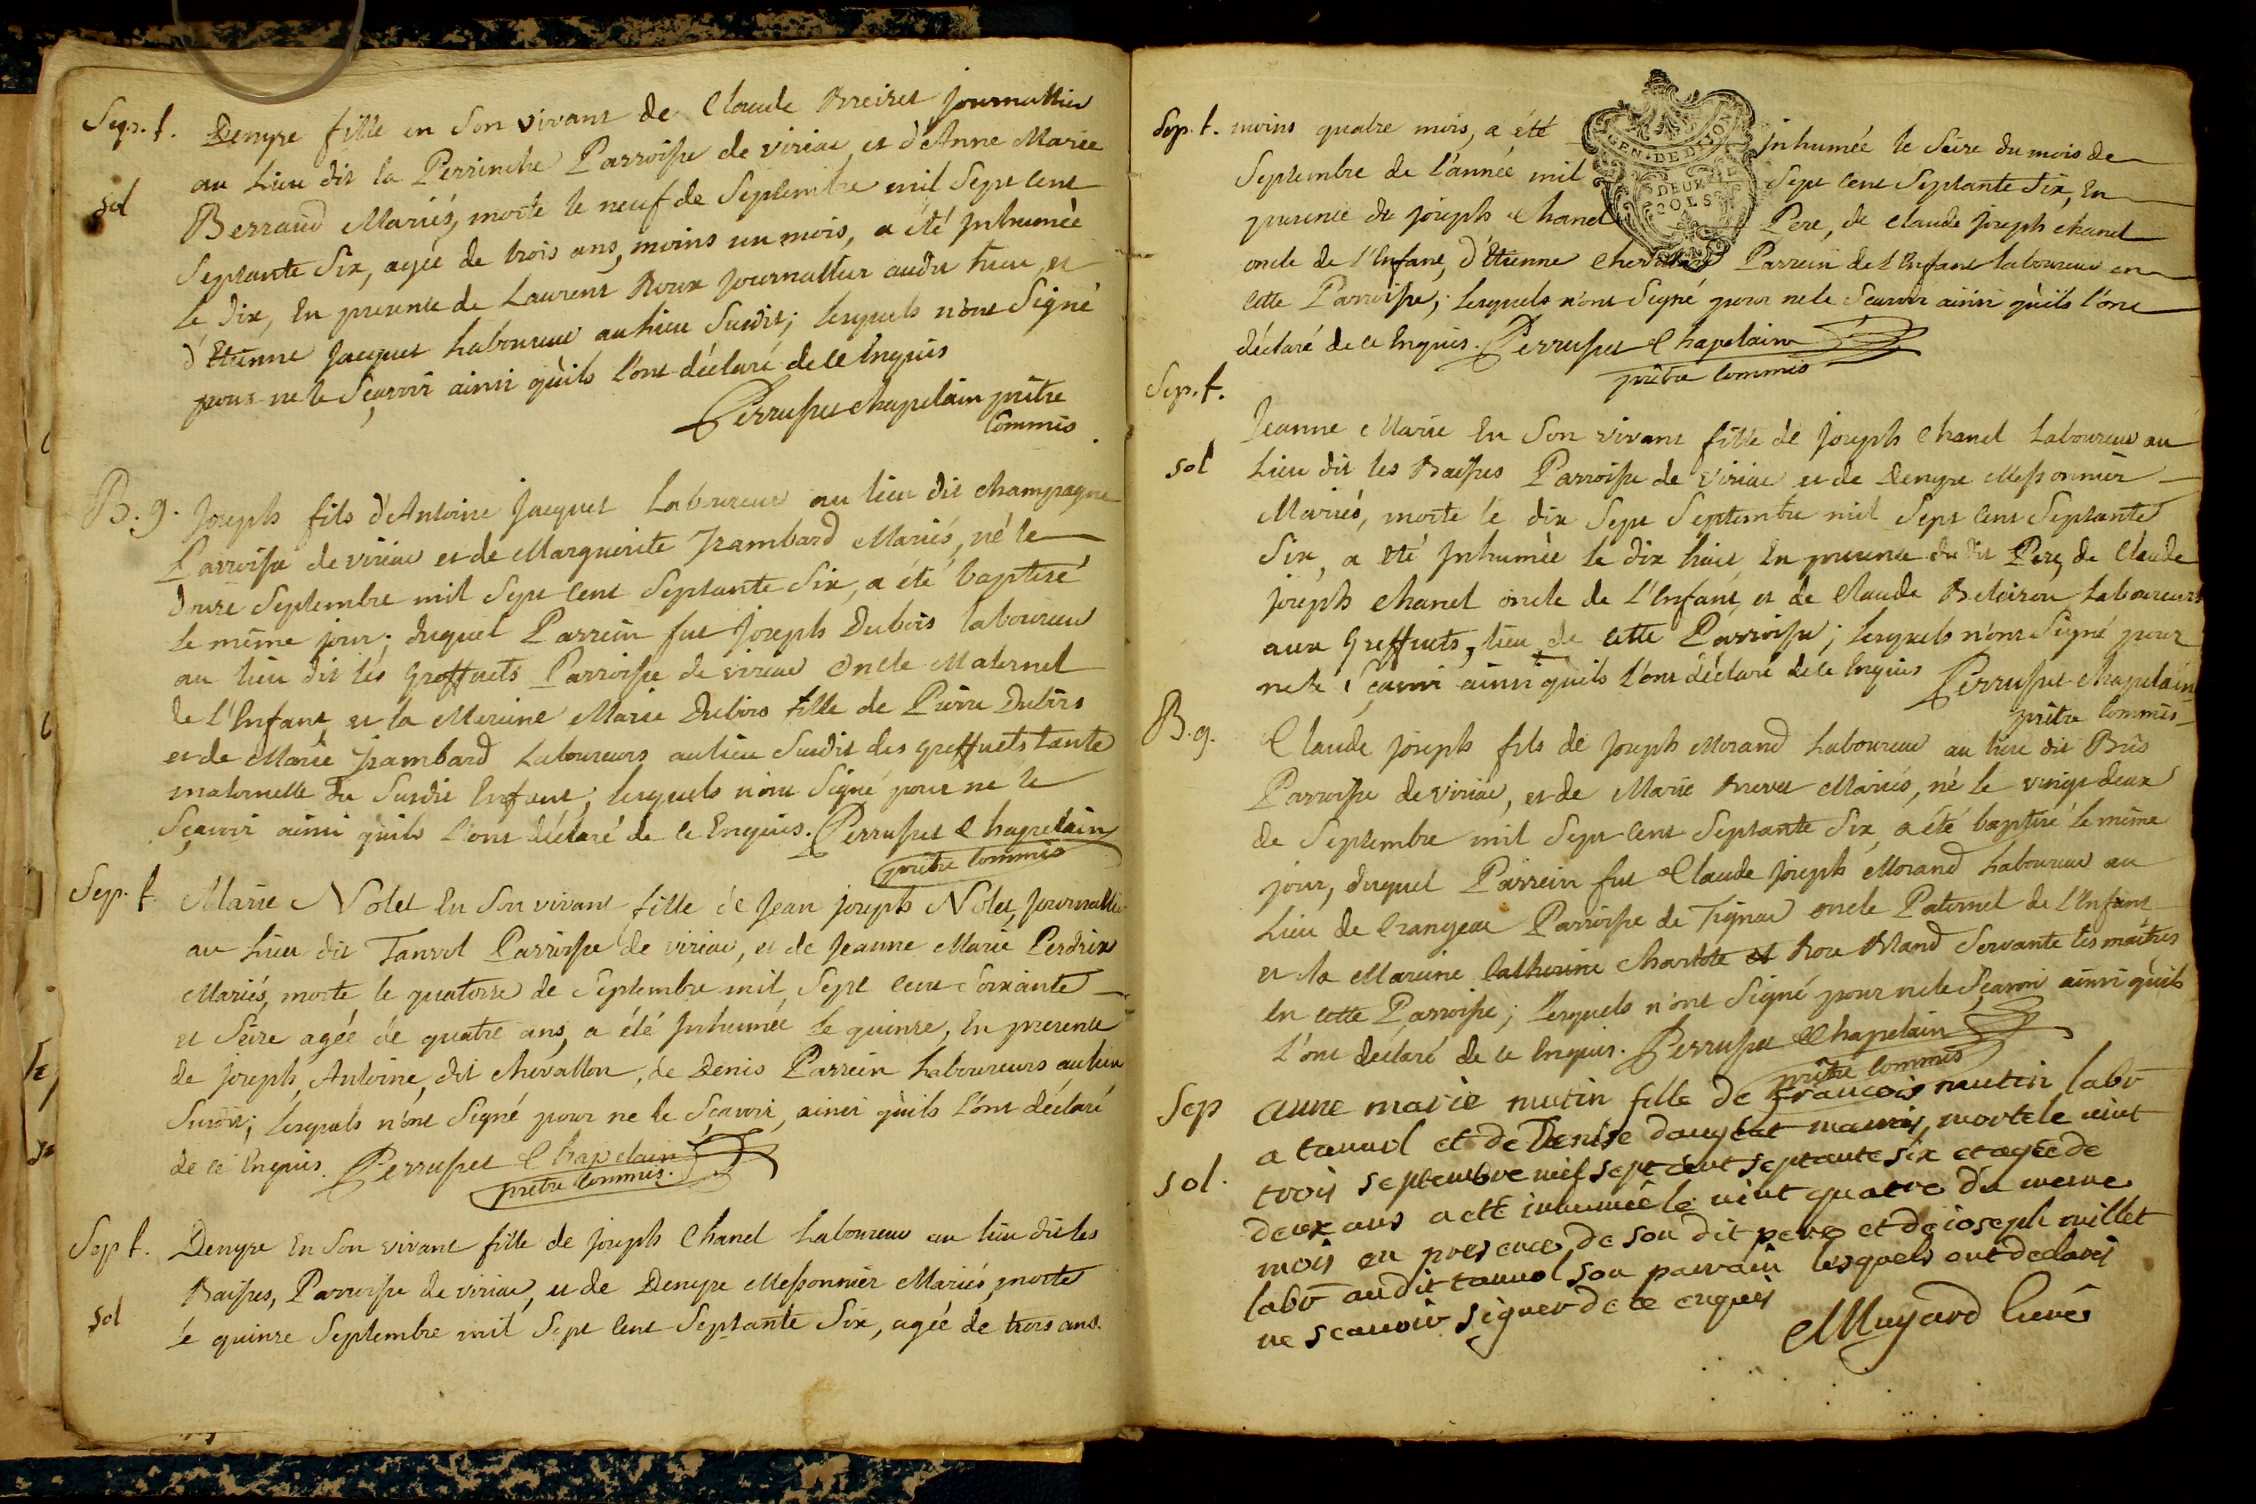 Sep. f. Denyse fille en son vivant de Claude Breiset journallier
au Lieu dit la Perrinche Parroisse de viriac, et d'Anne Marie
sol
Berraud Mariés, morte le neuf de Septembre mil Sept Cent
Septante Six, agée de trois ans, moins un mois, a été Inhumée
le dix, En presence de Laurent Roux Journallier audit Lieu, et
d'Etienne Jacquet Laboureur au Lieu Susdit; lesquels n'ont Signé
pour ne le Sçavoir ainsi qu'ils l'ont déclaré de ce Enquis
Perrusset chapelain prêtre
Commis
B. g. Joseph fils d'Antoine Jacquet Laboureur au lieu dit champagne
Parroisse de viriac et de Marguerite Jrambard Mariés, né le
douze Septembre mil Sept Cent Septante Six, a été baptisé
le même jour; duquel Parrein fut Joseph Dubois laboureur
au lieu dit les Greffuets Parroisse de viriac Oncle Maternel
de L'Enfant, et la Mareine Marie Dubois fille de Pierre Dubois
et de Marie Jrambard Laboureurs au lieu Susdit des greffuets tante
maternelle du Susdit Enfant; lesquels n'ont Signé pour ne le
Sçavoir ainsi qu'ils l'ont déclaré de ce Enquis. Perrusset Chapelain
prêtre Commis
Sep. f. Marie Nolet En Son vivant fille de Jean joseph Nolet, Journallier
au Lieu dit Tanvol Parroisse de viriac, et de Jeanne Marie Perdrix
Mariés, morte le quatorse de Septembre mil Sept Cent Soixante
et Seize agée de quatre ans, a été Inhumée le quinse, En presence
de joseph, Antoine, dit chevallon, de Denis Parrein Laboureurs au lieu
Susdit; lesquels n'ont Signé pour ne le Sçavoir, ainsi qu'ils l'ont déclaré
de ce Enquis. Perrusset Chapelain
prêtre Commis.
Sep. f. Denyse En Son vivant fille de joseph Chanel Laboureur au lieu dit les
Baisses, Parroisse de viriac, et de Denyse Messonnier Mariés, morte
sol
le quinze Septembre mil Sept Cent Septante Six, agée de trois ans.
Sep. f. moins quatre mois, a été Inhumée le Seize du mois de
Septembre de l'année mil Sept Cent Septante Six, En
presence de joseph Chanel Pere, de Claude joseph chanel
GEN. DE DIJON
DEUX
SOLS
oncle de l'Enfant, d'Etienne Parrein de l'Enfant laboureur en
cette Parroisse; lesquels n'ont Signé pour ne le Sçavoir ainsi qu'ils l'ont
déclaré de ce Enquis. Perrusset Chapelain
prêtre Commis
Sep. f.
Jeanne Marie En Son vivant fille de joseph Chanel Laboureur au
sol
Lieu dit les Baisses Parroisse de viriac et de Denyse Messonnier
Mariés, morte le dix Sept Septembre mil Sept Cent Septante
Six, a été Inhumée le dix huit, En presence du dit Pere, de Claude
joseph Chanel oncle de l'Enfant, et de Claude Laboureurs
aux Greffuets, lieu de cette Parroisse; lesquels n'ont Signé pour
ne le Sçavoir ainsi qu'ils l'ont déclaré de ce Enquis Perrusset Chapelain
prêtre Commis
B. g.
Claude joseph fils de joseph Morand Laboureur au lieu dit Bus
Parroisse de viriac, et de Marie Brevet Mariés, né le vingt deux
de Septembre mil Sept Cent Septante Six, a été baptisé le même
jour, duquel Parrein fut Claude joseph Morand Laboureur au
Lieu de Crangeac Parroisse de Tignac oncle Paternel de l'Enfant
et la Mareine Catherine Charlote et Rose Bland Servante les maîtres
en cette Parroisse; lesquels n'ont Signé pour ne le Sçavoir ainsi qu'ils
l'ont déclaré de ce Enquis. Perrusset Chapelain
prêtre Commis
Sep anne marie mutin fille de francois mutin labr
a tanvol et de Denise mariés, morte le vint
sol.
trois septembre mil sept cent septante six et agée de
deux ans a eté inhumée le vint quatre du meme
mois en presence de son dit pere et de ioseph millet
labr audit tanvol son parrain lesquels ont declarés
ne scauoir signer de ce enquis
Muyard Curé